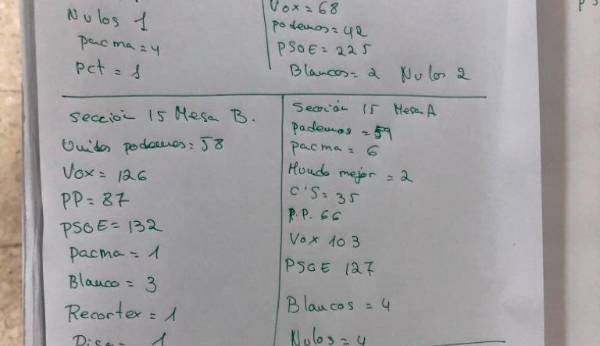 Nulos 1
pacma = 4
pct = 1
Vox = 68
podemos = 42
PSOE = 225
Blancos = 2 Nulos 2
Sección 15 Mesa B.
Unidos podemos = 58
Vox = 126
PP = 87
PSOE = 132
pacma = 1
Blanco = 3
Recortex = 1
Sección 15 Mesa A
podemos = 59
pacma = 6
Mundo mejor = 2
C'S = 35
P.P. 66
Vox 103
PSOE 127
Blancos = 4
Nulos = 4